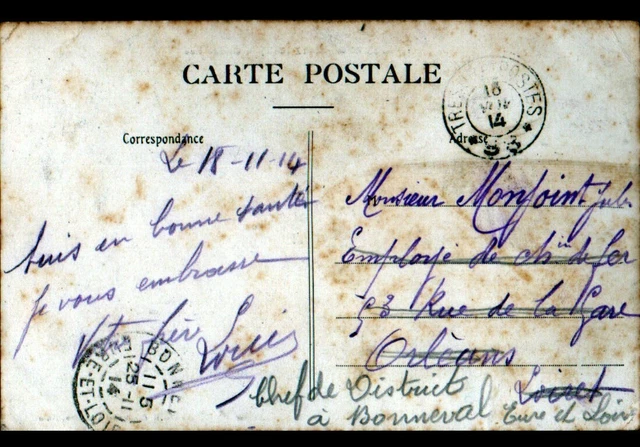 CARTE POSTALE
TRESOR POSTES
18
14
* 93 *
Correspondance
Adresse
Le 18-11-14
Suis en bonne santé
je vous embrasse
Louis
Monsieur Monjoint Jules
Employé de chin de fer
53 Rue de la Gare
Orléans
Loiret
Chef de District
à Bonneval Eure et Loir
BONNEVAL
25-11
14
EURE-ET-LOIR